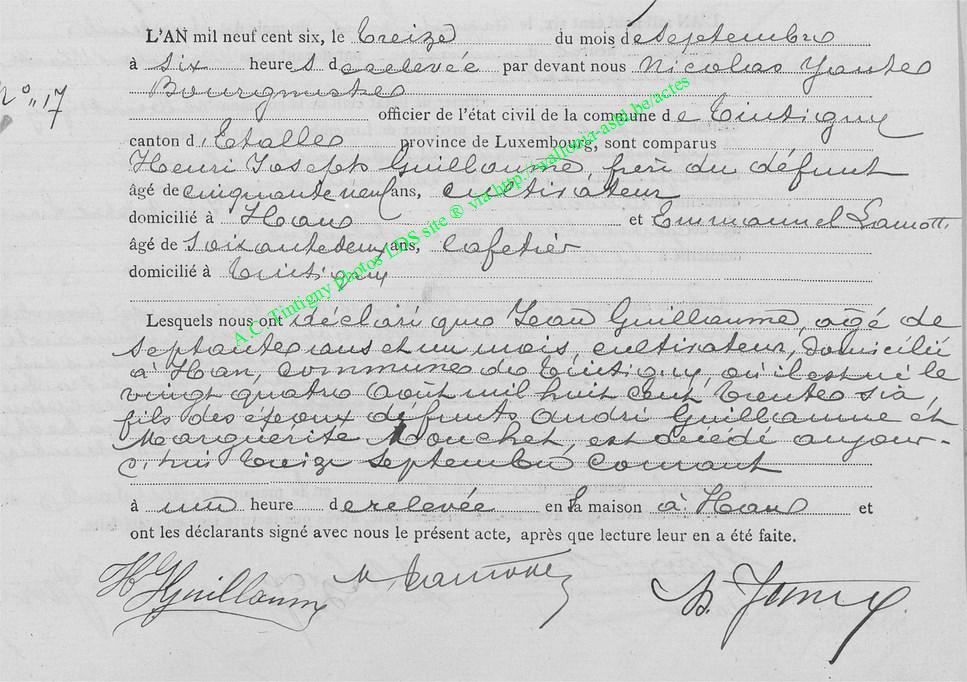 L'AN mil neuf cent six, le treize du mois de septembre
à six heures de relevée par devant nous Nicolas
N° 17
Bourgmestre
officier de l'état civil de la commune de Tintigny
canton d'Etalle province de Luxembourg, sont comparus
Henri Joseph Guillaume, frère du défunt
âgé de cinquante neuf ans, cultivateur
domicilié à Han et Emmanuel Lamotte
âgé de soixante deux ans, cafetier
domicilié à Tintigny
A.C. Tintigny Photos LDS site ® via http://wallonia-asbl.be/actes
Lesquels nous ont déclaré que Jean Guillaume, agé de
septante ans et un mois, cultivateur, domicilié
à Han, commune de Tintigny, où il est né le
vingt quatre août mil huit cent trente six,
fils des époux défunts André Guillaume et
Marguerite Mouchet, est décédé aujour-
d'hui treize septembre courant
à une heure de relevée en la maison à Han et
ont les déclarants signé avec nous le présent acte, après que lecture leur en a été faite.
H Guillaume